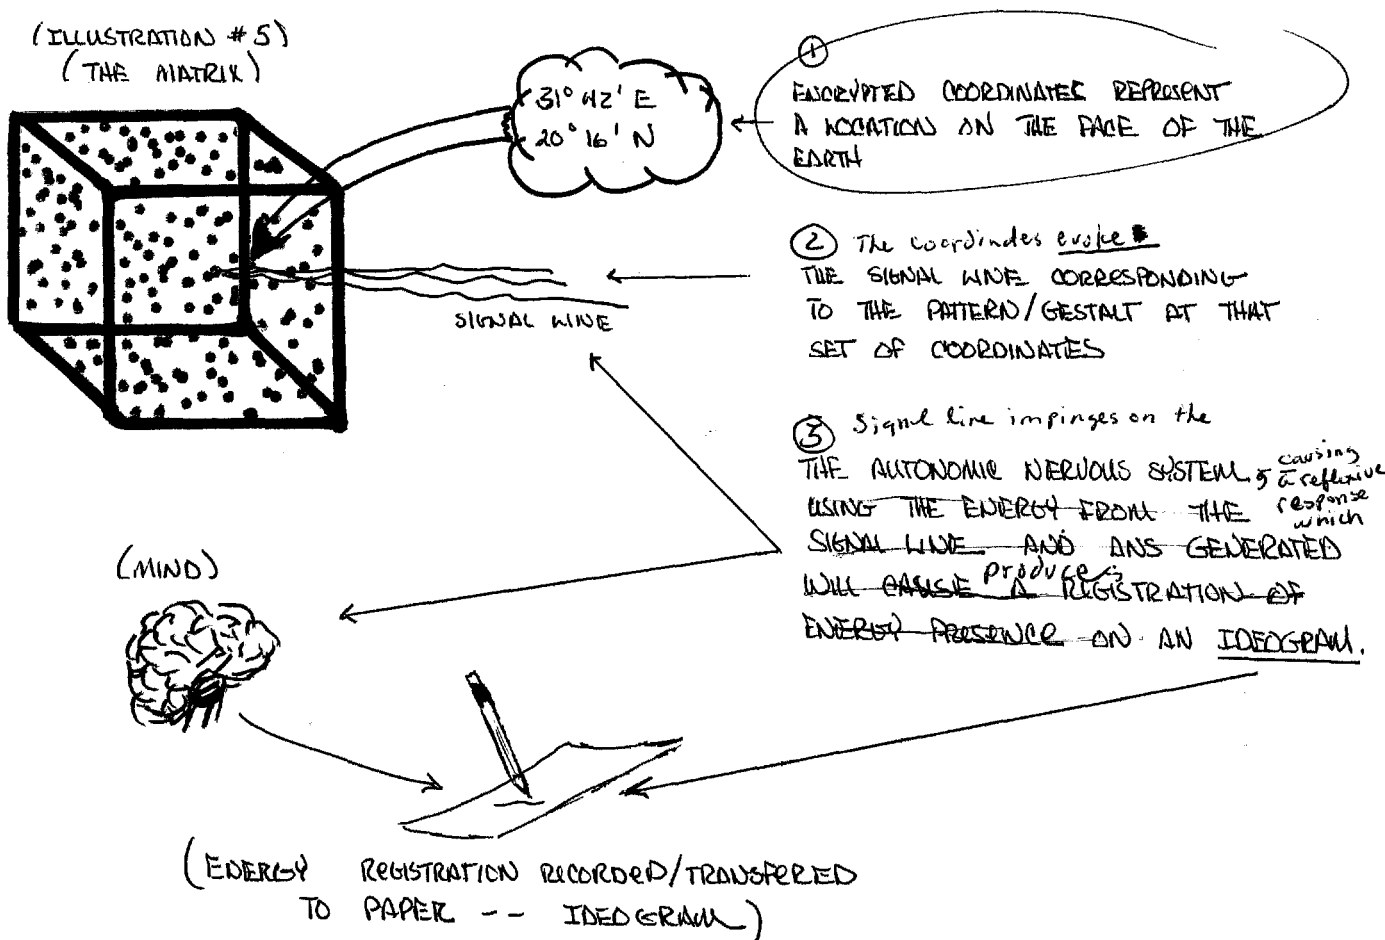 (ILLUSTRATION #5)
(THE MATRIX)
31° 42' E
20° 16' N
①
ENCRYPTED COORDINATES REPRESENT
A LOCATION ON THE FACE OF THE
EARTH
② The coordinates evoke
THE SIGNAL LINE CORRESPONDING
TO THE PATTERN/GESTALT AT THAT
SET OF COORDINATES
SIGNAL LINE
③ Signal line impinges on the
THE AUTONOMIC NERVOUS SYSTEM, causing
a reflexive
response
which
USING THE ENERGY FROM THE
SIGNAL LINE AND ANS GENERATED
produces
WILL CAUSE A REGISTRATION OF
ENERGY PRESENCE ON AN IDEOGRAM.
(MIND)
(ENERGY REGISTRATION RECORDED/TRANSFERED
TO PAPER -- IDEOGRAM)